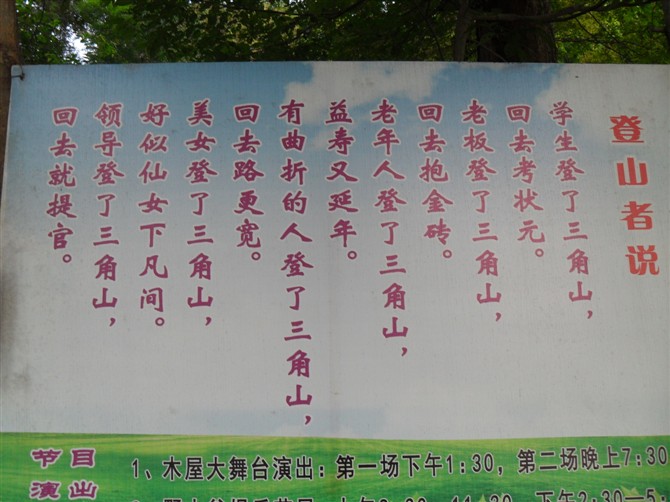 登山者说
学生登了三角山，
回去考状元。
老板登了三角山，
回去抱金砖。
老年人登了三角山，
益寿又延年。
有曲折的人登了三角山，
回去路更宽。
美女登了三角山，
好似仙女下凡间。
领导登了三角山，
回去就提官。
节目
演出
1、木屋大舞台演出：第一场下午1:30，第二场晚上7:30